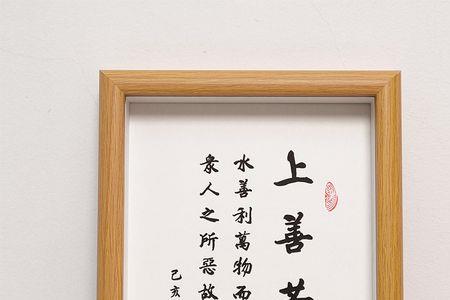 上善若
水善利萬物而
衆人之所惡故
己亥